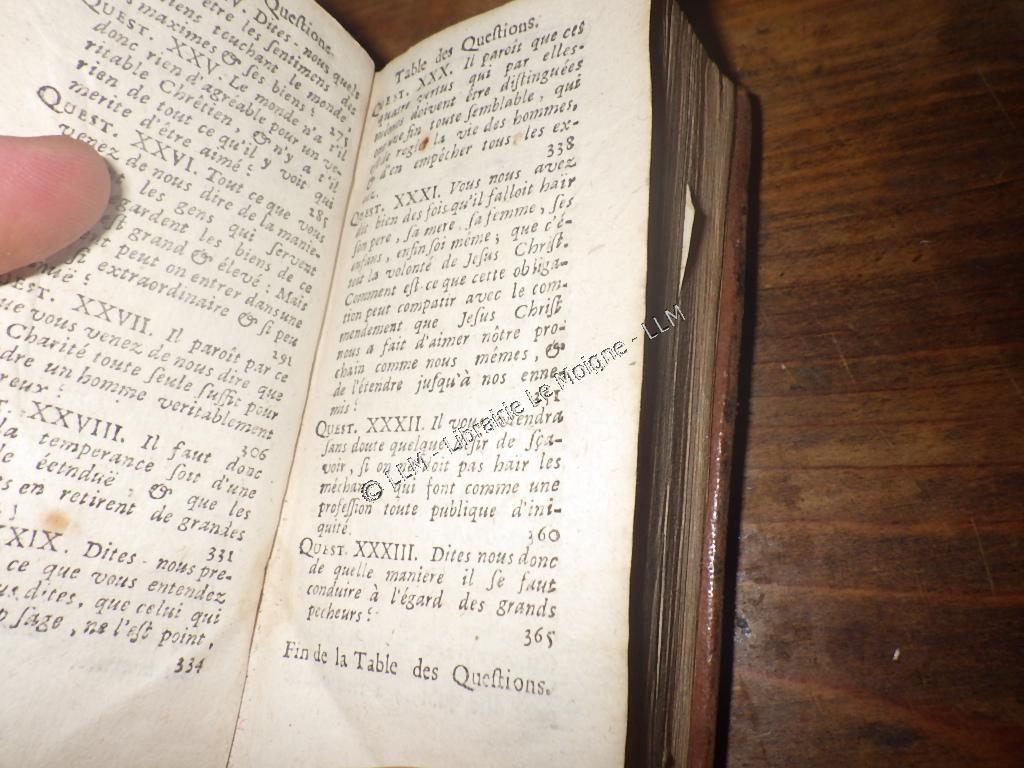 Questions.
V. Dites-nous, quels
être les sentimens des
iens touchant le monde,
maximes & ses biens? 275
QUEST. XXV. Le monde n'a t'il
donc rien d'agréable pour un ve-
ritable Chrétien, & n'y a t'il
rien de tout ce qu'il y voit qui
merite d'être aimé? 285
QUEST. XXVI. Tout ce que vous
venez de nous dire de la manie-
les gens qui servent
gardent les biens de ce
grand & élevé: Mais
peut on entrer dans une
extraordinaire & si peu
291
QUEST. XXVII. Il paroit par ce
que vous venez de nous dire que
Charité toute seule suffit pour
dre un homme veritablement
reux? 306
T. XXVIII. Il faut donc
la temperance soit d'une
de éetnduë, & que les
es en retirent de grandes
331
XXIX. Dites-nous pre-
ce que vous entendez
us dites, que celui qui
p sage, ne l'est point,
334
Table des Questions.
QUEST. XXX. Il paroit que ces
quatre vertus qui par elles-
mêmes doivent être distinguées
ont une fin toute semblable, qui
est de regler la vie des hommes,
& d'en empêcher tous les ex-
338
QUEST. XXXI. Vous nous avez
dit bien des fois qu'il falloit haïr
son pere, sa mere, sa femme, ses
enfans, enfin soi même; que c'é-
toit la volonté de Jesus Christ.
Comment est-ce que cette obliga-
tion peut compatir avec le com-
mendement que Jesus Christ
nous a fait d'aimer nôtre pro-
chain comme nous mêmes, &
de l'étendre jusqu'à nos enne-
mis?
QUEST. XXXII. Il vous prendra
sans doute quelque desir de sça-
voir, si on ne doit pas hair les
méchans, qui font comme une
profession toute publique d'ini-
quité. 360
QUEST. XXXIII. Dites nous donc
de quelle maniere il se faut
conduire à l'égard des grands
pecheurs?
365
Fin de la Table des Questions.
© LLM - Librairie Le Moigne - LLM